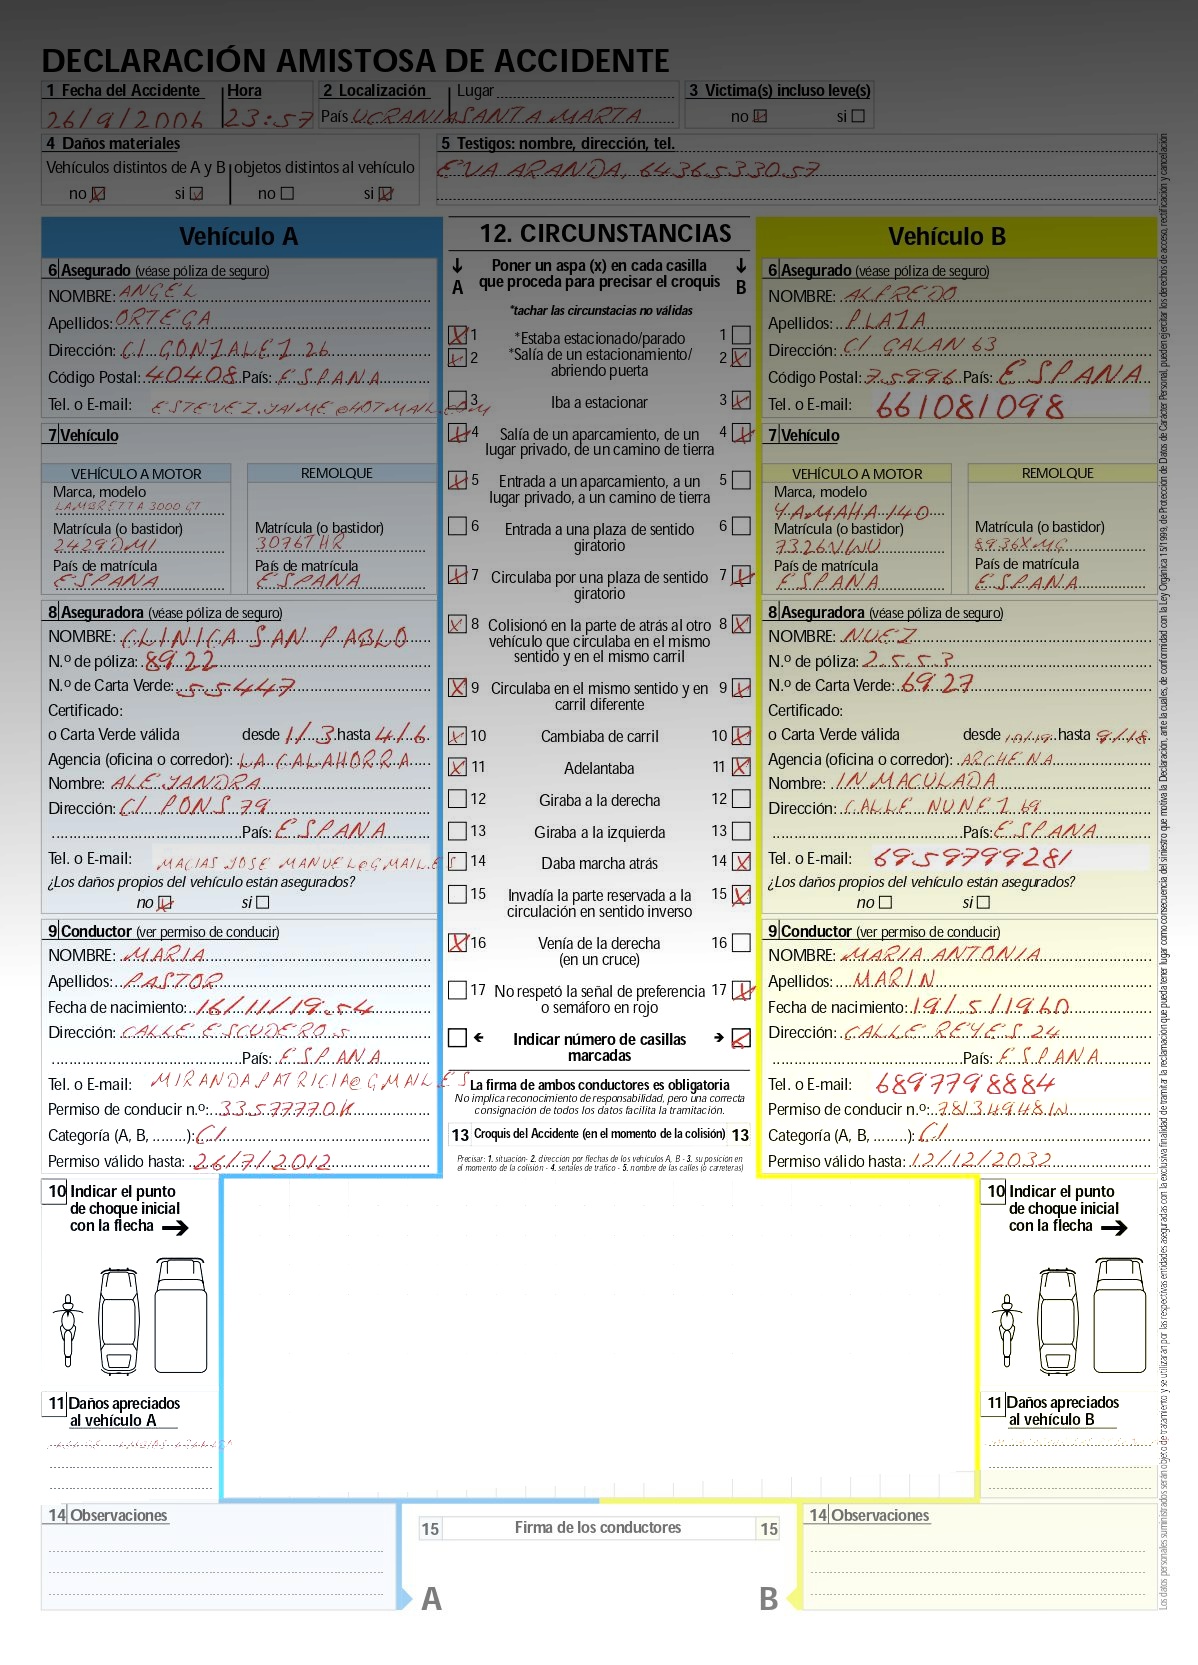 DECLARACIÓN AMISTOSA DE ACCIDENTE
1 Fecha del Accidente Hora 2 Localización Lugar 3 Victima(s) incluso leve(s)
26/9/2006 23:57 País UCRANIA SANTA MARTA no si
4 Daños materiales
Vehículos distintos de A y B objetos distintos al vehículo
no si no si
5 Testigos: nombre, dirección, tel.
EVA ARANDA, 6436533057
Vehículo A
6 Asegurado (véase póliza de seguro)
NOMBRE: ANGEL
Apellidos: ORTEGA
Dirección: C/ GONZALEZ 26
Código Postal: 40408 País: ESPANA
Tel. o E-mail: ESTEVEZ.JAIME@HOTMAIL.COM
7 Vehículo
VEHÍCULO A MOTOR REMOLQUE
Marca, modelo
LAMBRETTA 3000 GT
Matrícula (o bastidor) Matrícula (o bastidor)
2429DMI 3076THR
País de matrícula País de matrícula
ESPANA ESPANA
8 Aseguradora (véase póliza de seguro)
NOMBRE: CLINICA SAN PABLO
N.º de póliza: 8922
N.º de Carta Verde: 55447
Certificado:
o Carta Verde válida desde 1/3 hasta 4/6
Agencia (oficina o corredor): LA CALAHORRA
Nombre: ALEJANDRA
Dirección: C/ PONS 79
País: ESPANA
Tel. o E-mail: MACIAS JOSE MANUEL@GMAIL.ES
¿Los daños propios del vehículo están asegurados?
no si
9 Conductor (ver permiso de conducir)
NOMBRE: MARIA
Apellidos: PASTOR
Fecha de nacimiento: 16/11/1954
Dirección: CALLE ESCUDERO 5
País: ESPANA
Tel. o E-mail: MIRANDAPATRICIA@GMAIL.ES
Permiso de conducir n.º: 33577770K
Categoría (A, B, ........): C1
Permiso válido hasta: 26/7/2012
12. CIRCUNSTANCIAS
Poner un aspa (x) en cada casilla
A que proceda para precisar el croquis B
*tachar las circunstacias no válidas
1 *Estaba estacionado/parado 1
2 *Salía de un estacionamiento/ 2
abriendo puerta
3 Iba a estacionar 3
4 Salía de un aparcamiento, de un 4
lugar privado, de un camino de tierra
5 Entrada a un aparcamiento, a un 5
lugar privado, a un camino de tierra
6 Entrada a una plaza de sentido 6
giratorio
7 Circulaba por una plaza de sentido 7
giratorio
8 Colisionó en la parte de atrás al otro 8
vehículo que circulaba en el mismo
sentido y en el mismo carril
9 Circulaba en el mismo sentido y en 9
carril diferente
10 Cambiaba de carril 10
11 Adelantaba 11
12 Giraba a la derecha 12
13 Giraba a la izquierda 13
14 Daba marcha atrás 14
15 Invadía la parte reservada a la 15
circulación en sentido inverso
16 Venía de la derecha 16
(en un cruce)
17 No respetó la señal de preferencia 17
o semáforo en rojo
Indicar número de casillas
marcadas
La firma de ambos conductores es obligatoria
No implica reconocimiento de responsabilidad, pero una correcta
consignación de todos los datos facilita la tramitación.
13 Croquis del Accidente (en el momento de la colisión) 13
Precisar: 1. situación- 2. dirección por flechas de los vehículos A, B - 3. su posición en
el momento de la colisión - 4. señales de tráfico - 5. nombre de las calles (o carreteras)
Vehículo B
6 Asegurado (véase póliza de seguro)
NOMBRE: ALFREDO
Apellidos: PLAZA
Dirección: C/ GALAN 63
Código Postal: 75996 País: ESPANA
Tel. o E-mail: 661081098
7 Vehículo
VEHÍCULO A MOTOR REMOLQUE
Marca, modelo
YAMAHA 140
Matrícula (o bastidor) Matrícula (o bastidor)
7326NWU 8936XMG
País de matrícula País de matrícula
ESPANA ESPANA
8 Aseguradora (véase póliza de seguro)
NOMBRE: NUEZ
N.º de póliza: 2553
N.º de Carta Verde: 6927
Certificado:
o Carta Verde válida desde 10/19 hasta 9/18
Agencia (oficina o corredor): ARCHENA
Nombre: INMACULADA
Dirección: CALLE NUNEZ 69
País: ESPANA
Tel. o E-mail: 6959799281
¿Los daños propios del vehículo están asegurados?
no si
9 Conductor (ver permiso de conducir)
NOMBRE: MARIA ANTONIA
Apellidos: MARIN
Fecha de nacimiento: 19/5/1960
Dirección: CALLE REYES 24
País: ESPANA
Tel. o E-mail: 6897798884
Permiso de conducir n.º: 78134948W
Categoría (A, B, ........): C1
Permiso válido hasta: 12/12/2032
10 Indicar el punto
de choque inicial
con la flecha
11 Daños apreciados
al vehículo A
10 Indicar el punto
de choque inicial
con la flecha
11 Daños apreciados
al vehículo B
14 Observaciones
15 Firma de los conductores 15
A B
14 Observaciones
Los datos personales suministrados serán objeto de tratamiento y se utilizaran por las respectivas entidades aseguradas con la exclusiva finalidad de tramitar la reclamación que pueda tener lugar como consecuencia del siniestro que motiva la Declaración, ante la cuales, de conformidad con la Ley Orgánica 15/1999, de Protección de Datos de Carácter Personal, pueden ejercitar los derechos de acceso, rectificación y cancelación